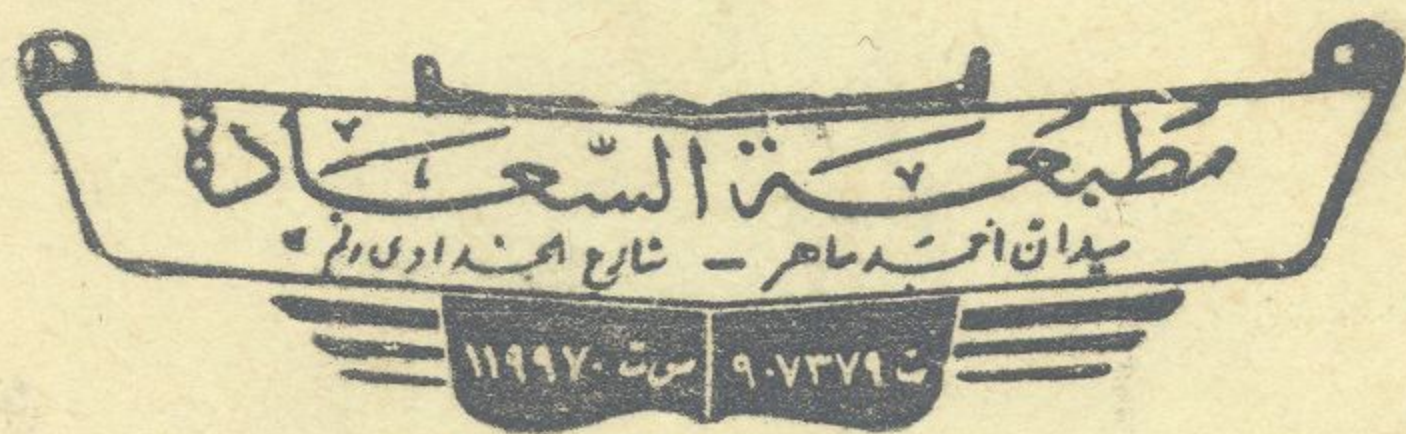 مطبعة السعادة
ميدان أحمد ماهر - شارع الجداوى رقم ٥
ت ٩٠٧٣٧٩ س ت ١١٩٩٧٠